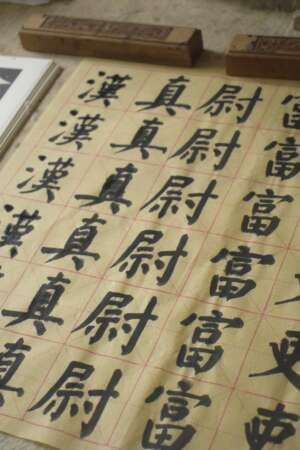 富富富富富富
尉尉尉尉尉尉
真真真真真真
漢漢漢漢